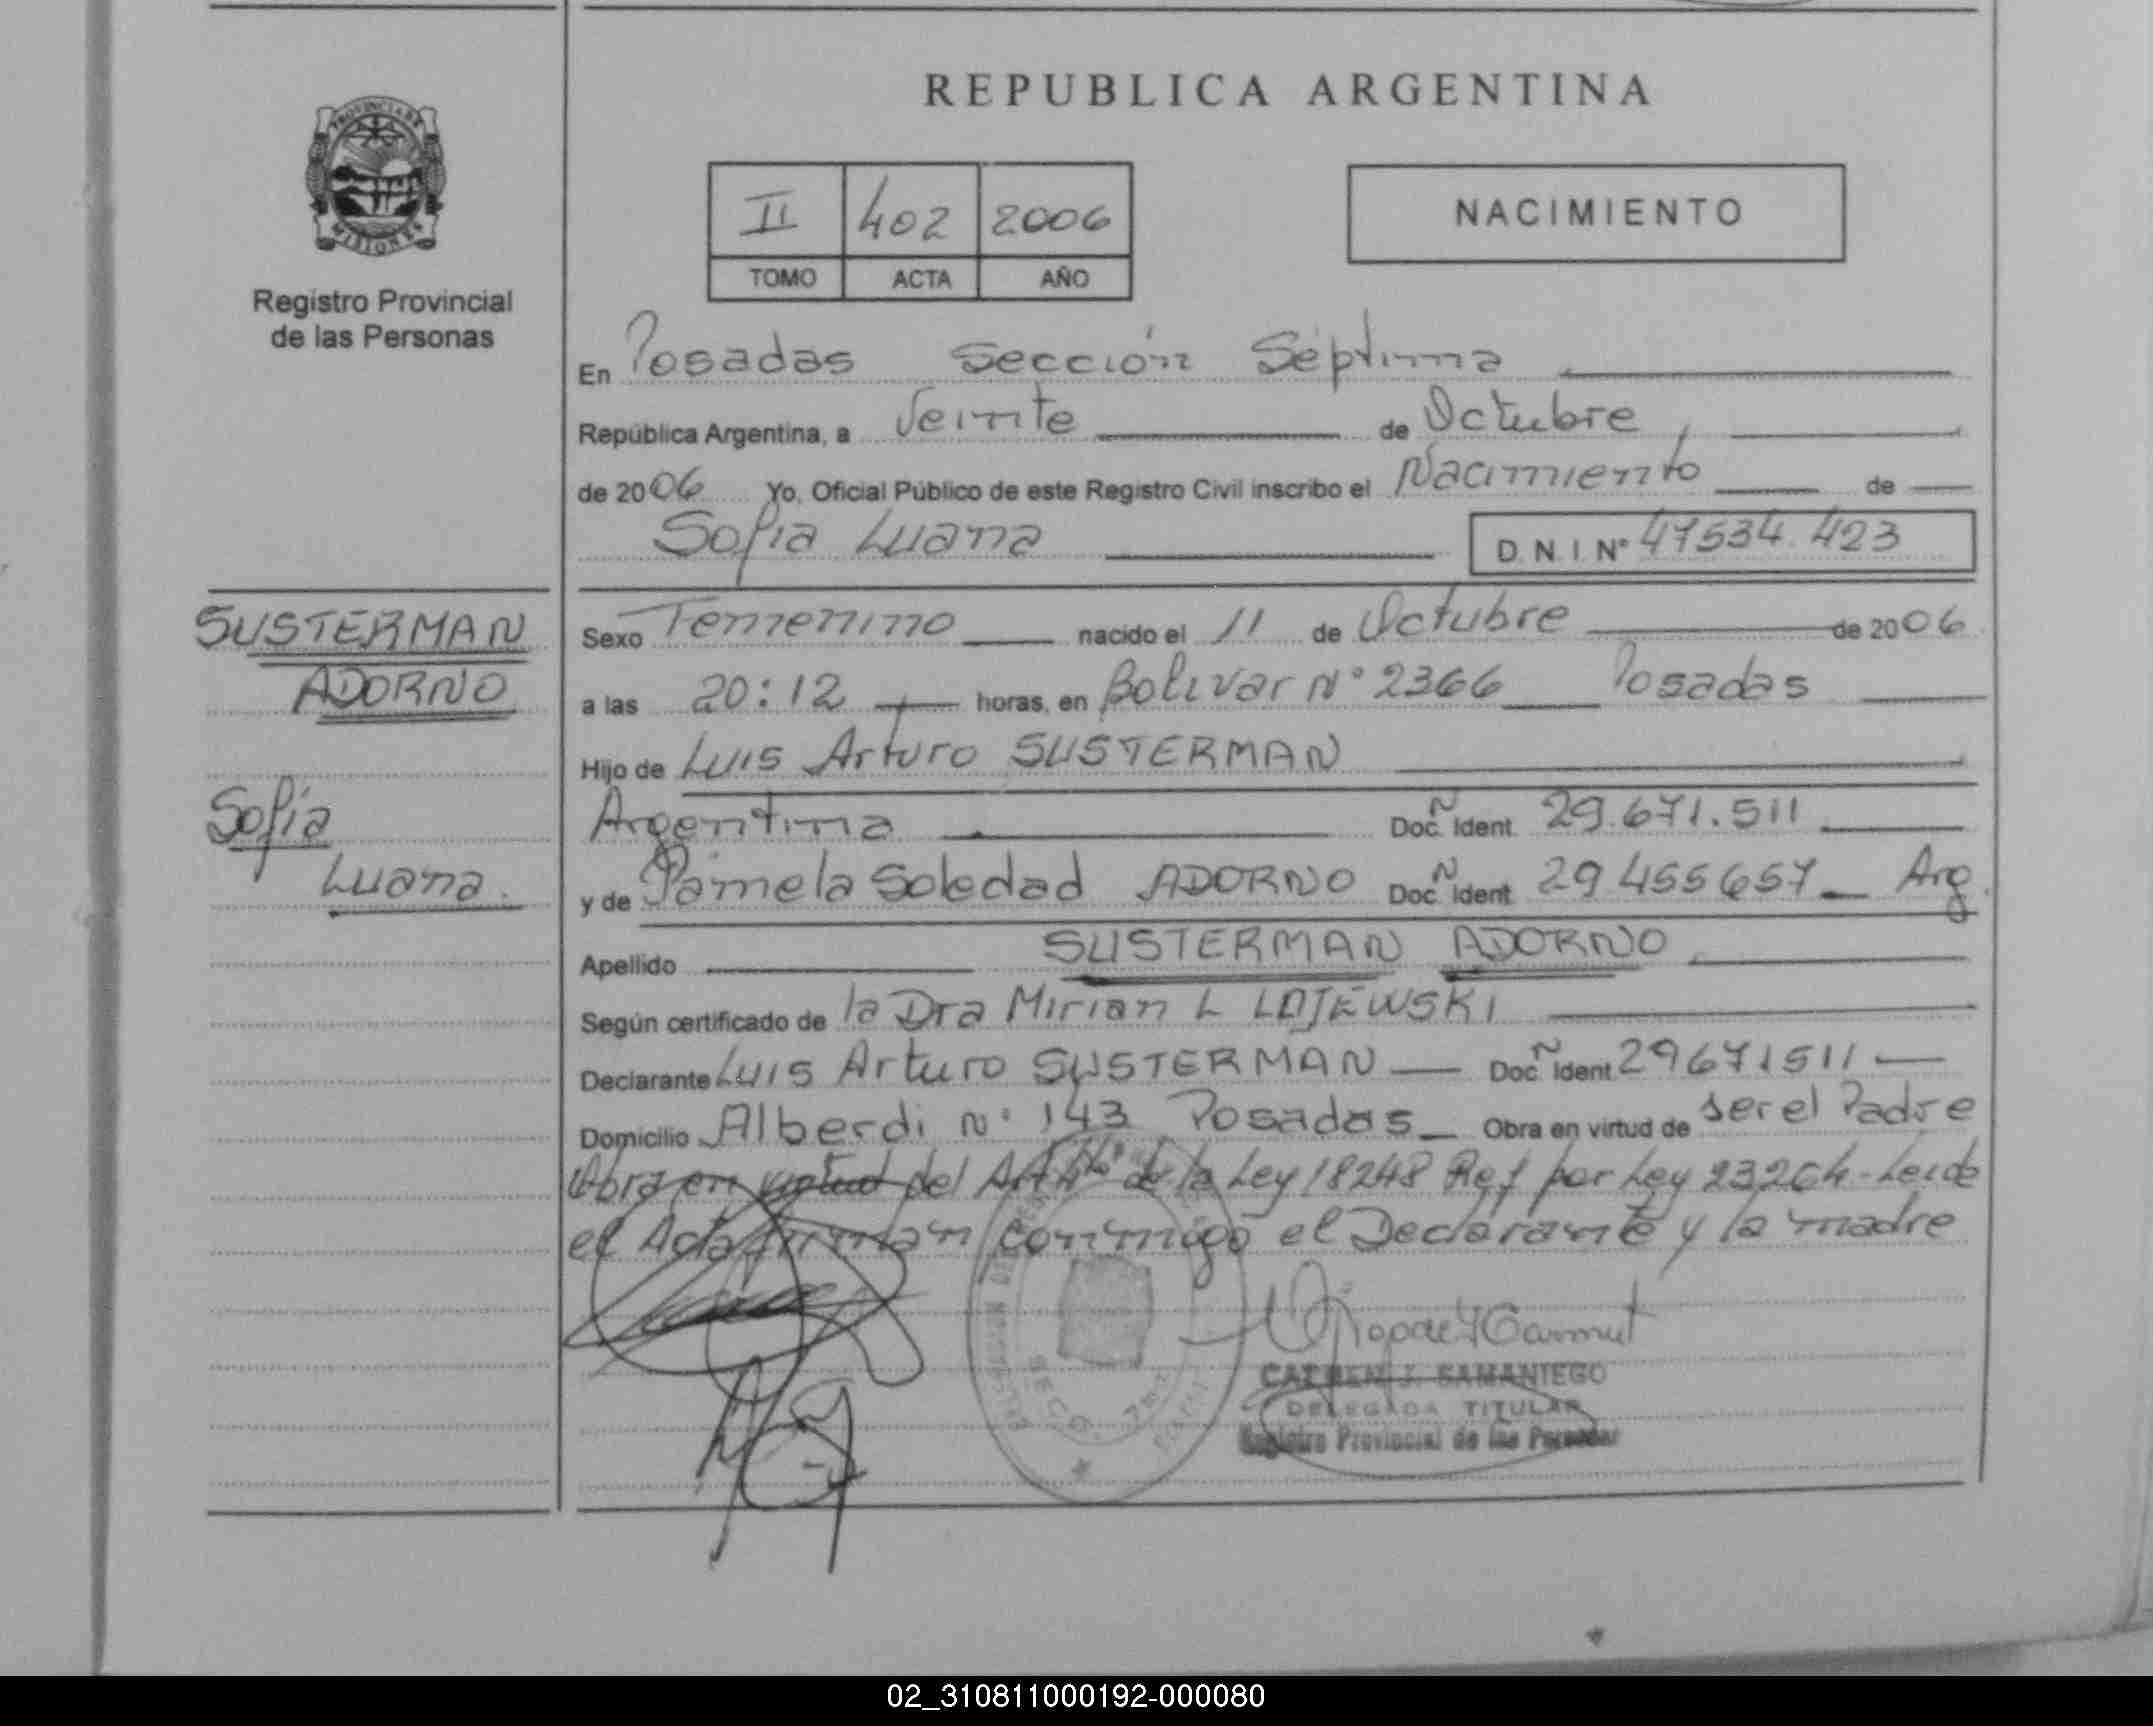 REPUBLICA ARGENTINA
PROVINCIA DE
MISIONES
Registro Provincial
de las Personas
II 402 2006
TOMO ACTA AÑO
NACIMIENTO
En Posadas Sección Séptima
República Argentina, a Veinte de Octubre
de 2006 Yo, Oficial Público de este Registro Civil inscribo el Nacimiento de
Sofia Luana D.N.I. Nº 47534.423
SUSTERMAN
ADORNO
Sofía
Luana.
Sexo Femenino nacido el 11 de Octubre de 2006
a las 20:12 horas, en Bolivar Nº 2366 Posadas
Hijo de Luis Arturo SUSTERMAN
Argentina Doc. Ident. 29.671.511
y de Pamela Soledad ADORNO Doc. Ident. 29.455657 Arg.
Apellido SUSTERMAN ADORNO
Según certificado de la Dra Mirian L LAJEWSKI
Declarante Luis Arturo SUSTERMAN Doc. Ident 29671511
Domicilio Alberdi Nº 143 Posadas Obra en virtud de ser el Padre
Obra en virtud del Art 4º de la Ley 18248 Ref por Ley 23264-Leida
el Acta firman conmigo el Declarante y la madre
CARMEN J. SAMANIEGO
DELEGADA TITULAR
Registro Provincial de las Personas
02_310811000192-000080